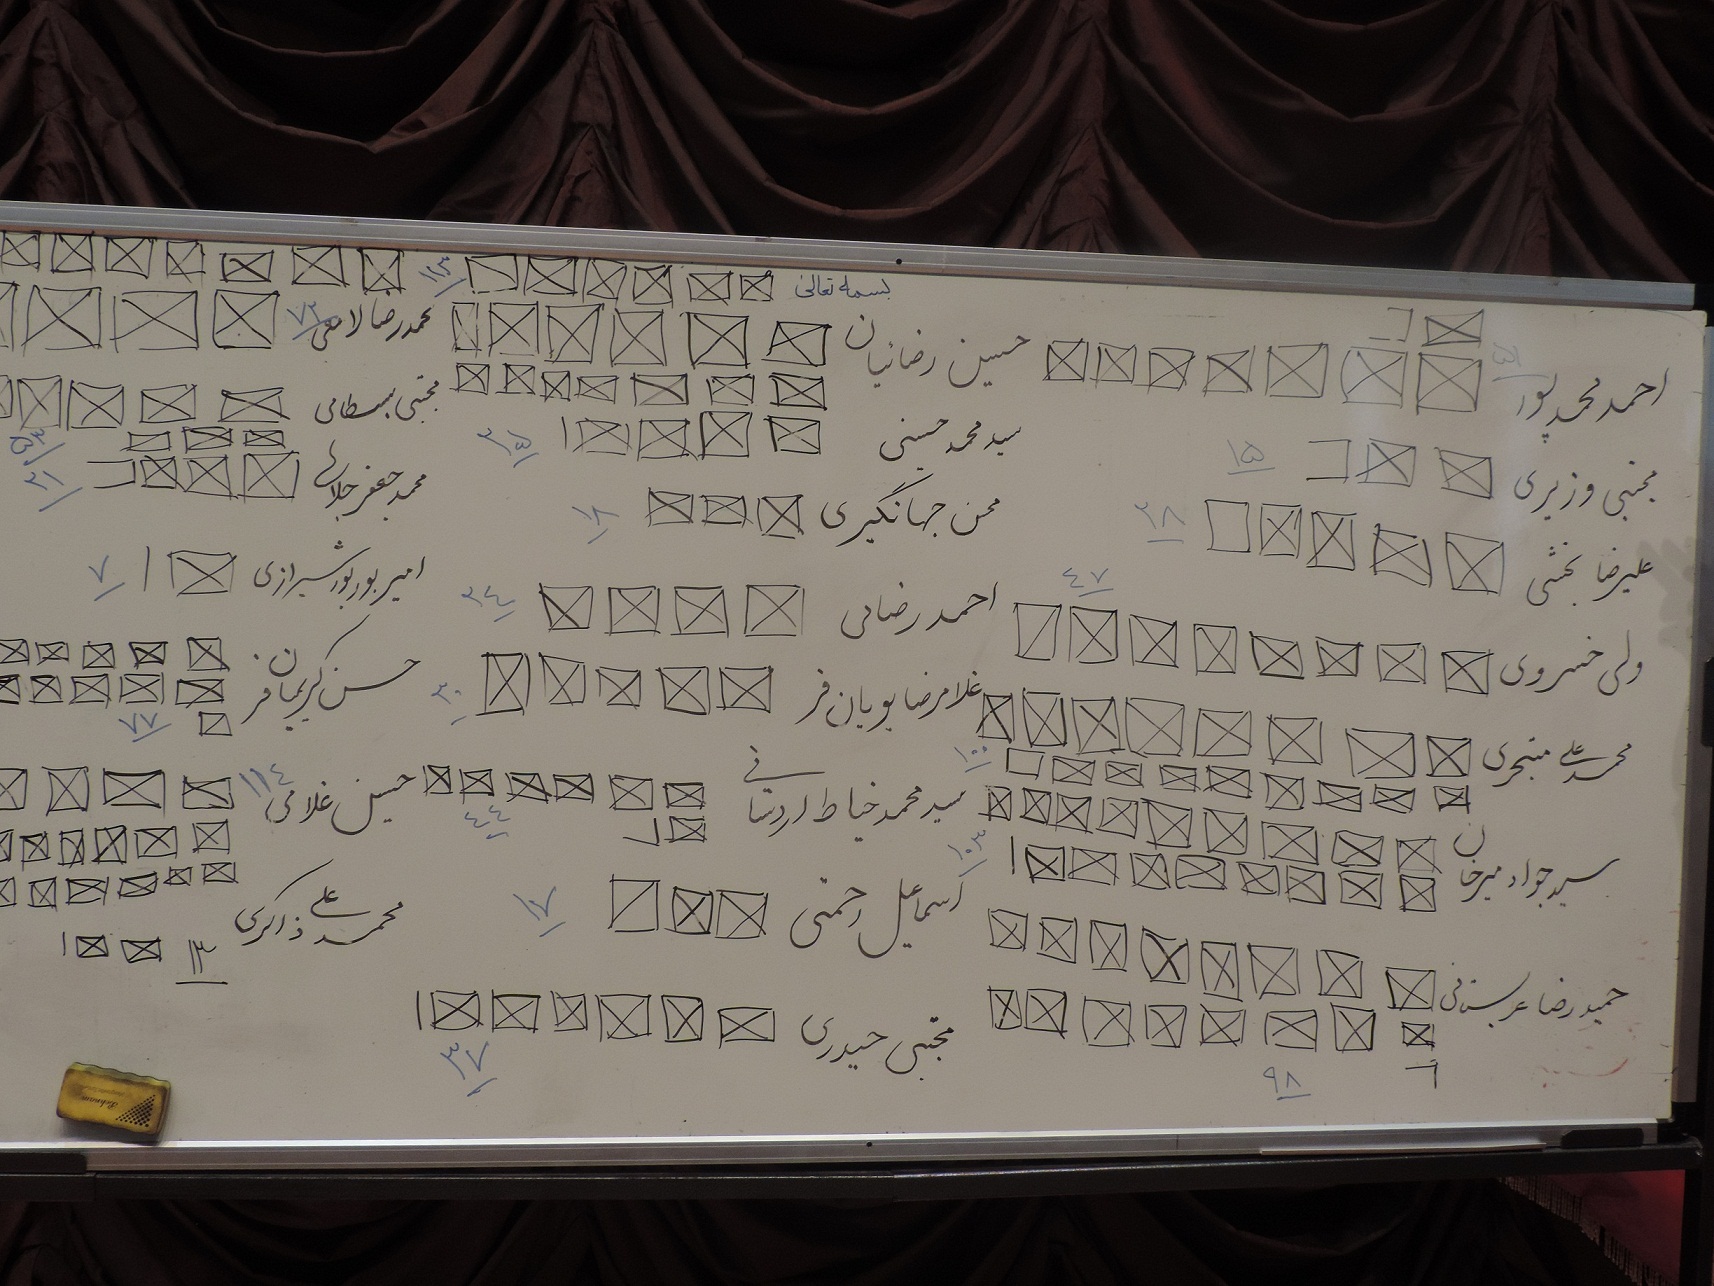 بسمه تعالی
احمد محمدپور
مجتبی وزیری ۱۵
علیرضا بخشی ۲۸
ولی خسروی ۴۷
محمدعلی ۱۰۰
سید جواد میرخان ۱۰۳
حمیدرضا عربستانی ۹۸
حسین رضائیان
سید محمد حسینی ۲۵
محسن جهانگیری ۱۸
احمد رضائی ۲۴
غلامرضا پویان فر ۳۰
سید محمد خیاط اردستانی ۴۴
اسماعیل رحمتی ۱۷
مجتبی حیدری ۳۷
محمدرضا ۷۲
مجتبی بسطامی ۵۳
محمد جعفر جلالی ۲۱
امیر پورشیرازی ۷
حسن کریمان فر ۷۷
حسین غلامی ۱۱۴
محمدعلی ذاکری ۱۳